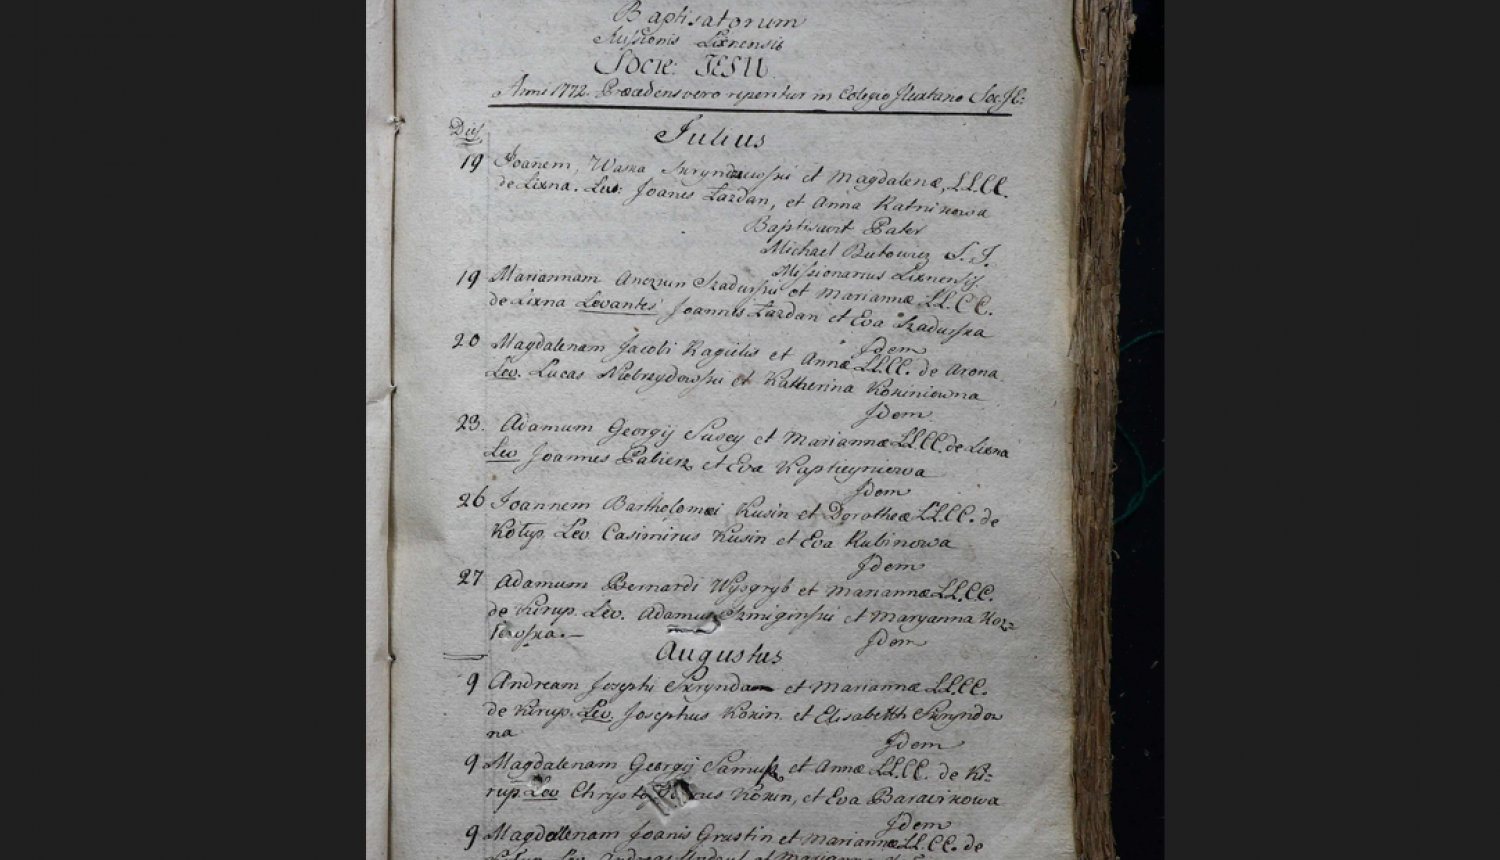 Baptisatorum
Missionis Lixnensis
Socie: IESU
Anni 1772. Praecedens vero reperitur in Colegio Ilextano Soc. JE:
Dies
Iulius
19 Joanem, Waska Skryndzewski et Magdalenæ, LL.CC.
de Lixna. Lev: Joanes Łazdan, et Anna Ratnikowa
Baptisavit Pater
Michael Butowicz S.J.
Missionarius Lixnensis.
19 Mariannam Szadurski et Mariannæ LL.CC.
de Lixna Levantes Joannis Łazdan et Eva Szadurska
Idem
20 Magdalenam Jacobi Kagielis et Annæ LL.CC. de Arona
Lev. Lucas Niebrzydowski et Katherina Kokiniewna
Idem
23. Adamum Georgij Susey et Mariannæ LL.CC. de Lixna
Lev Joannes et Eva Kaptieyniowa
Idem
26 Joannem Bartholomæi Kusin et Dorotheæ LL.CC. de
Kołup. Lev Casimirus Kusin et Eva Kubinowa
Idem
27 Adamum Bernardi Wysgryb et Mariannæ LL.CC.
de Kirup. Lev. Adamus Szmiginski et Maryanna Koz-
łowska.—
Idem
Augustus
9 Andream Josephi Skrynda et Mariannæ LL.CC.
de Kirup. Lev. Josephus Kokin. et Elisabetth Skryndow
na
Idem
9 Magdalenam Georgij et Annæ LL.CC. de Ki-
rup Lev Kokin, et Eva Barawikowa
Idem
9 Magdallenam Joanis Grustin et Mariannæ LL.CC. de